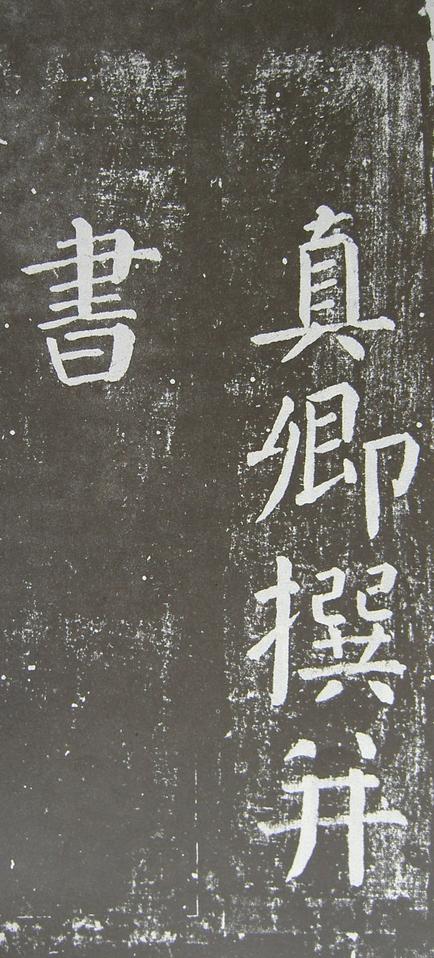 真卿撰并
書